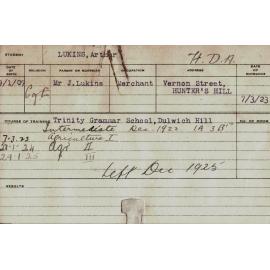 STUDENT
LUKINS, Arthur H.D.A.
RELIGION PARENT OR GUARDIAN OCCUPATION ADDRESS
9/2/07 C of E Mr J.Lukins Merchant Vernon Street, HUNTER'S HILL 7/3/23
COURSE OF TRAINING Trinity Grammar School, Dulwich Hill
Intermediate Dec. 1922 1A 3B's
7-3-23 Agriculture I
24 Agr II
25 III
Left Dec 1925
RESULTS